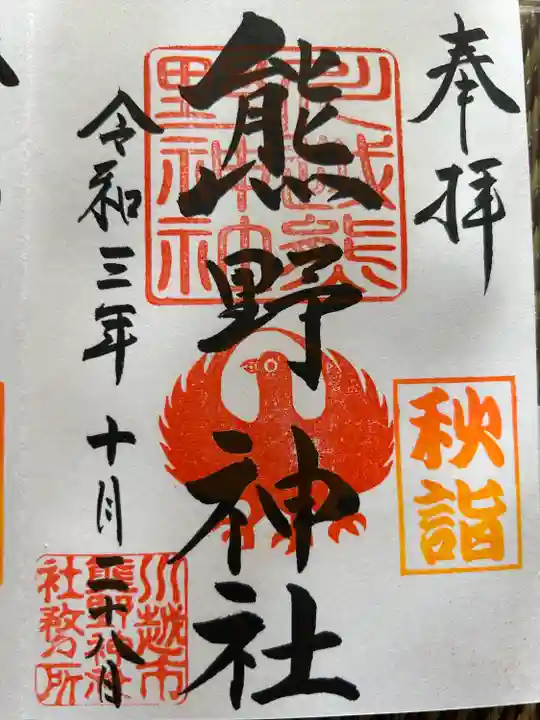 奉拝
秋詣
熊野神社
川越熊
野神社
令和三年十月二十八日
川越市
熊野神社
社務所